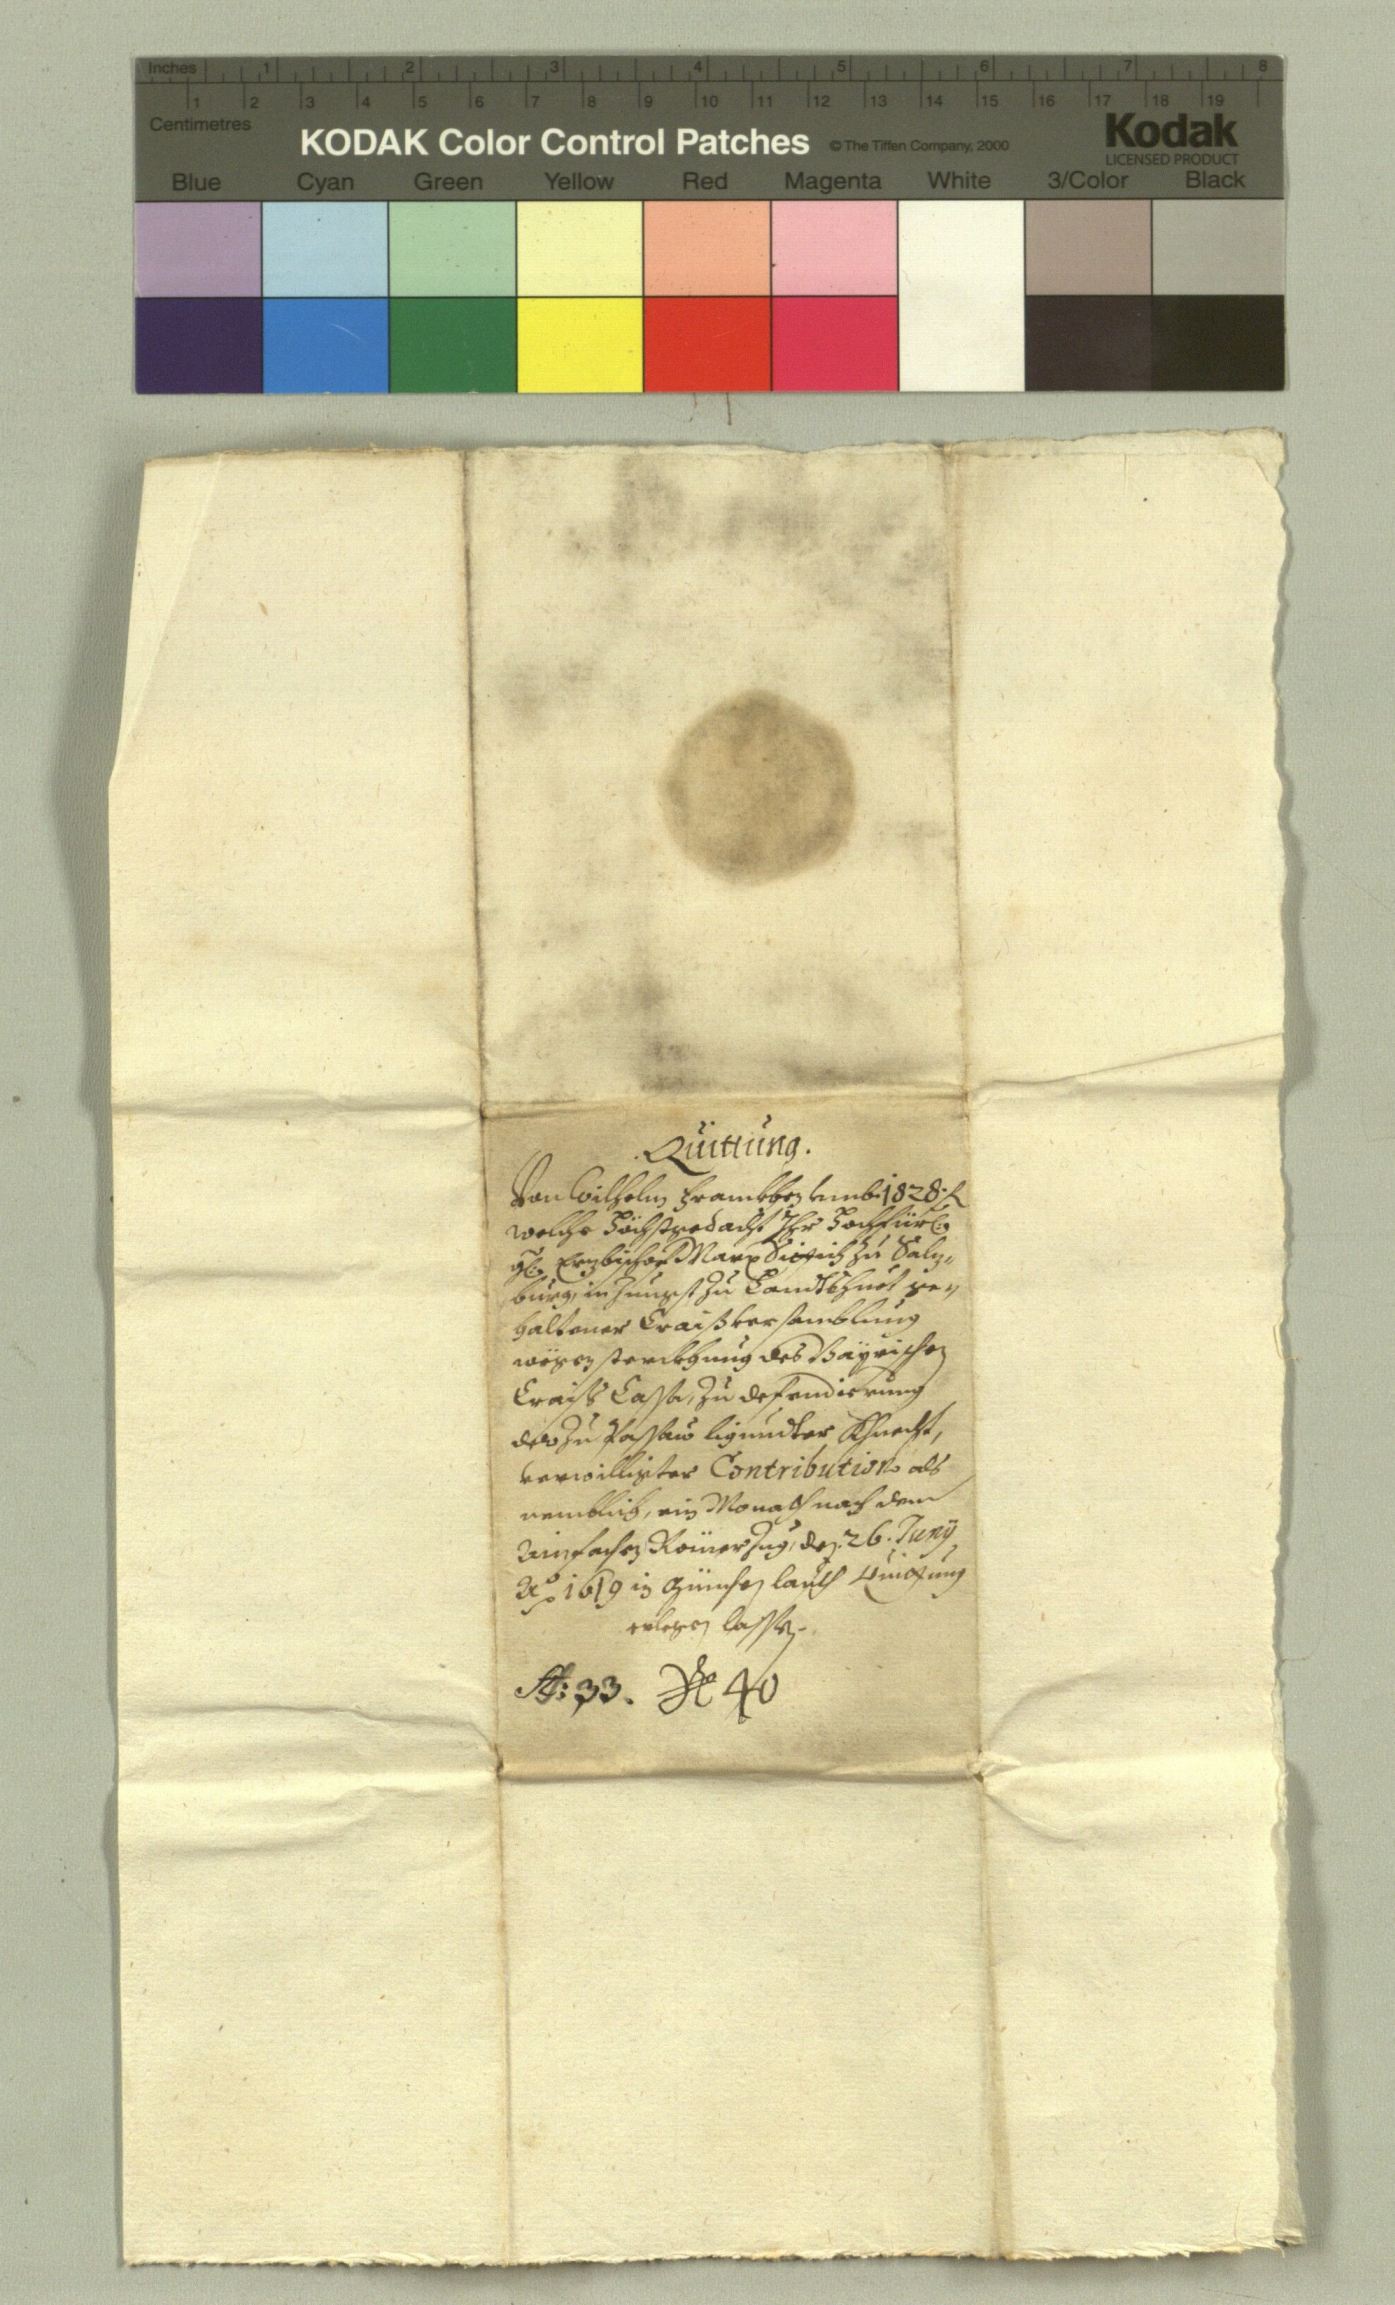 Inches 1 2 3 4 5 6 7 8
1 2 3 4 5 6 7 8 9 10 11 12 13 14 15 16 17 18 19
Centimetres
KODAK Color Control Patches © The Tiffen Company, 2000 Kodak
LICENSED PRODUCT
Blue Cyan Green Yellow Red Magenta White 3/Color Black
Quittung.
Von Wilhelm umb 1828 f
welche Höchstgedacht Ihr Hochfürl:
Gl: Erzbischof Marx Sittich zu Salz„
burg, in Jungst zu Landtshuet ge„
haltener Craißversamblung
wegen sterckhung des Bayrischen
Craiß Cassa, zu defendierung
der zu Passaw ligundter Khnecht,
verwilligter Contribution als
nemblich, ein Monath nach dem
Ainfachen Römerzug, den 26. Juny
Ao 1619 in München lauth Quittung
erlegen lassen.
33. No 40